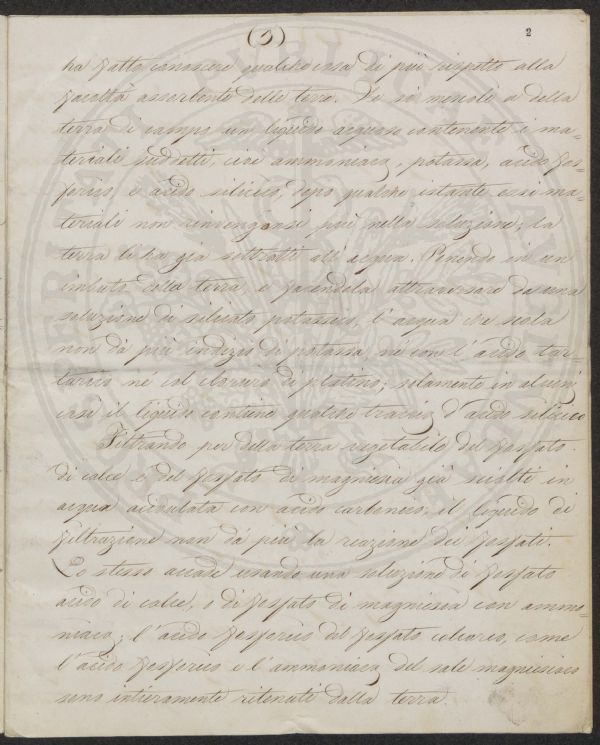 (3)
2
ha fatto conoscere qualche cosa di più rispetto alla
facoltà assorbente delle terre. Se si mescoli a della
terra di campo un liquido acquoso contenente i ma-
teriali suddetti, cioè ammoniaca, potassa, acido fos-
forico, e acido silicico, dopo qualche istante essi ma-
teriali non rinvengonsi più nella soluzione; la
terra li ha già sottratti all'acqua. Ponendo in un
imbuto della terra, e facendola attraversare da una
soluzione di silicato potassico, l'acqua che scola
non dà più indizio di potassa, nè con l'acido tar-
tarico nè col cloruro di platino; solamente in alcuni
casi il liquido contiene qualche traccia d'acido silicico
Filtrando per della terra vegetabile del fosfato
di calce e del fosfato di magnesia già sciolti in
acqua acidulata con acido carbonico; il liquido di
filtrazione non dà più la reazione dei fosfati.
Lo stesso accade usando una soluzione di fosfato
acido di calce, o di fosfato di magnesia con ammo-
niaca; l'acido fosforico del fosfato calcareo, come
l'acido fosforico e l'ammoniaca del sale magnesiaco
sono intieramente ritenuti dalla terra.